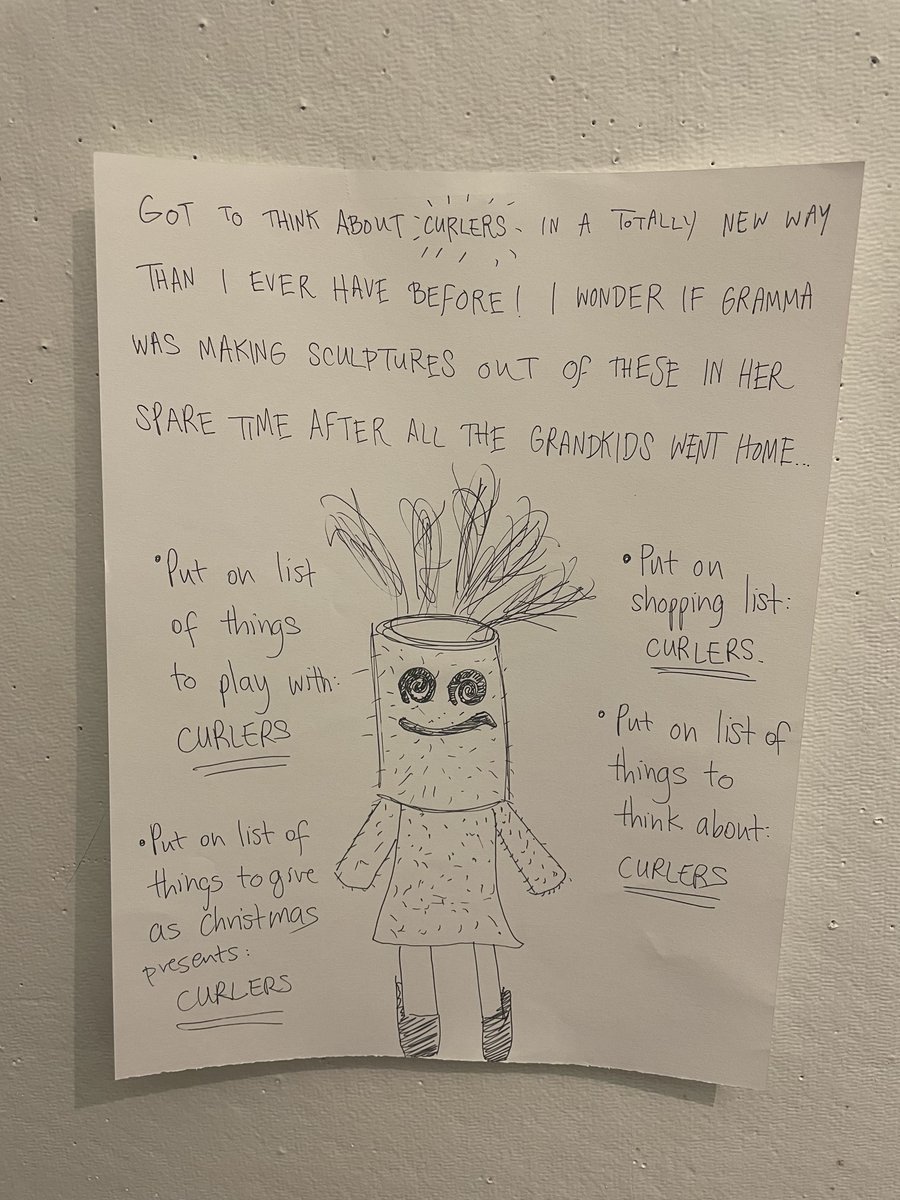 GOT TO THINK ABOUT CURLERS IN A TOTALLY NEW WAY
THAN I EVER HAVE BEFORE! I WONDER IF GRAMMA
WAS MAKING SCULPTURES OUT OF THESE IN HER
SPARE TIME AFTER ALL THE GRANDKIDS WENT HOME...
• Put on list
of things
to play with:
CURLERS
• Put on list of
things to give
as Christmas
presents:
CURLERS
• Put on
shopping list:
CURLERS.
• Put on list of
things to
think about:
CURLERS